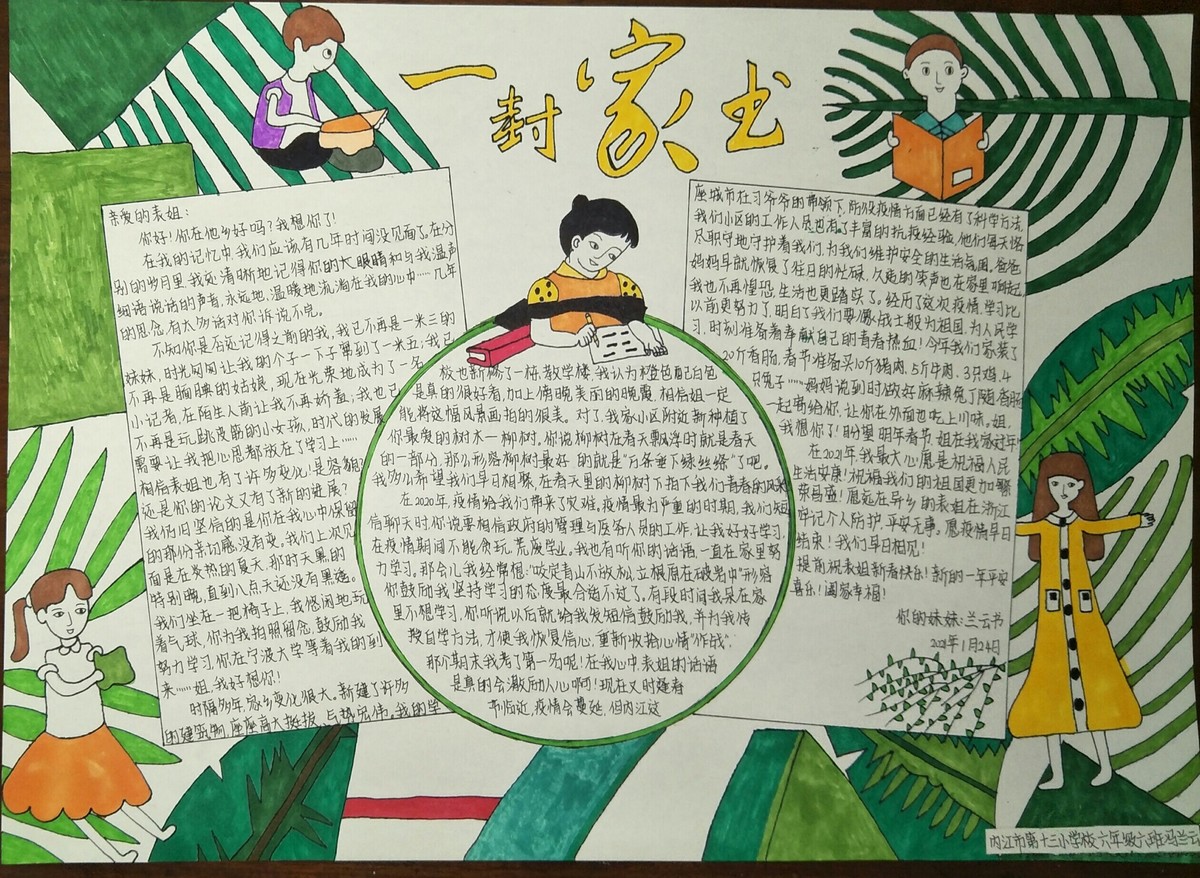 一封家书
亲爱的表姐：
你好！你在他乡好吗？我想你了！
在我的记忆中，我们应该有几年时间没见面了，在分
别的岁月里，我还清晰地记得你的大眼睛和与我温声
细语说话的声音，永远地、温暖地流淌在我的心中……几年
的思念，有太多话对你诉说不完。
不知你是否还记得之前的我，我已不再是一米三的
妹妹，时光匆匆让我的个子一下子窜到了一米五；我已
不再是腼腆的姑娘，现在光荣地成为了一名
小记者，在陌生人前让我不再娇羞；我也已
不再是玩跳皮筋的小女孩，时代的发展
需要让我把心思都放在了学习上……
相信表姐也有了许多变化，是容貌？
还是你的论文又有了新的进展？
我仍旧坚信的是你在我心中保留
的那份亲切感没有变。我们上次见
面是在炎热的夏天，那时天黑的
特别晚，直到八点天还没有黑透。
我们坐在一把椅子上，我悠闲地玩
着气球，你为我拍照留念，鼓励我
努力学习，你在宁波大学等着我的到
来……姐，我好想你！
时隔多年，家乡变化很大，新建了许多
的建筑物，座座高大挺拔、气势宏伟，我的学
校也新修了一栋教学楼，我认为橙色配白色
是真的很好看，加上傍晚美丽的晚霞，相信姐一定
能将这幅风景画拍的很美。对了，我家小区附近新种植了
你最爱的树木—柳树。你说柳树在春天飘浮时就是春天
的一部分，那么形容柳树最好的就是“万条垂下绿丝绦”了吧。
我多么希望我们早日相聚，在春天里的柳树下拍下我们青春的风采
在2020年，疫情给我们带来了灾难。疫情最为严重的时期，我们短
信聊天时你说要相信政府的管理与医务人员的工作，让我好好学习，
在疫情期间不能贪玩，荒废学业。我也有听你的话语，一直在家里努
力学习。那会儿我经常借：“咬定青山不放松，立根原在破岩中”形容
你鼓励我坚持学习的态度最合适不过了。有段时间我呆在家
里不想学习，你听说以后就给我发短信鼓励我，并为我传
授自学方法，才使我恢复信心，重新收拾心情“作战”，
那个期末我考了第一名呢！在我心中，表姐的话语
是真的会激励人心啊！现在又时逢春
节临近，疫情会蔓延，但内江这
座城市在习爷爷的带领下，防控疫情方面已经有了科学方法，
我们小区的工作人员也有了丰富的抗疫经验，他们每天恪
尽职守地守护着我们，为我们维护安全的生活氛围。爸爸
妈妈早就恢复了往日的忙碌，久违的笑声也在家里响起，
我也不再惶恐，生活也更踏实了。经历了这次疫情，学习比
以前更努力了，明白了我们要像战士般为祖国，为人民学
习，时刻准备着奉献自己的青春热血！今年我们家装了
20斤香肠，春节准备买10斤猪肉，5斤牛肉，3只鸡，4
只兔子……妈妈说到时做好麻辣兔丁随香肠
一起带给你，让你在外面也吃上川味。姐，
我想你了！盼望明年春节，姐在我家过年！
在2021年我最大心愿是祝福人民
生活安康！祝福我们的祖国更加繁
荣昌盛！愿远在异乡的表姐在浙江
牢记个人防护，平安无事。愿疫情早日
结束！我们早日相见！
提前祝表姐新春快乐！新的一年平安
喜乐！阖家幸福！
你的妹妹：兰云书
2021年1月24日
内江市第十三小学校六年级六班冯兰云